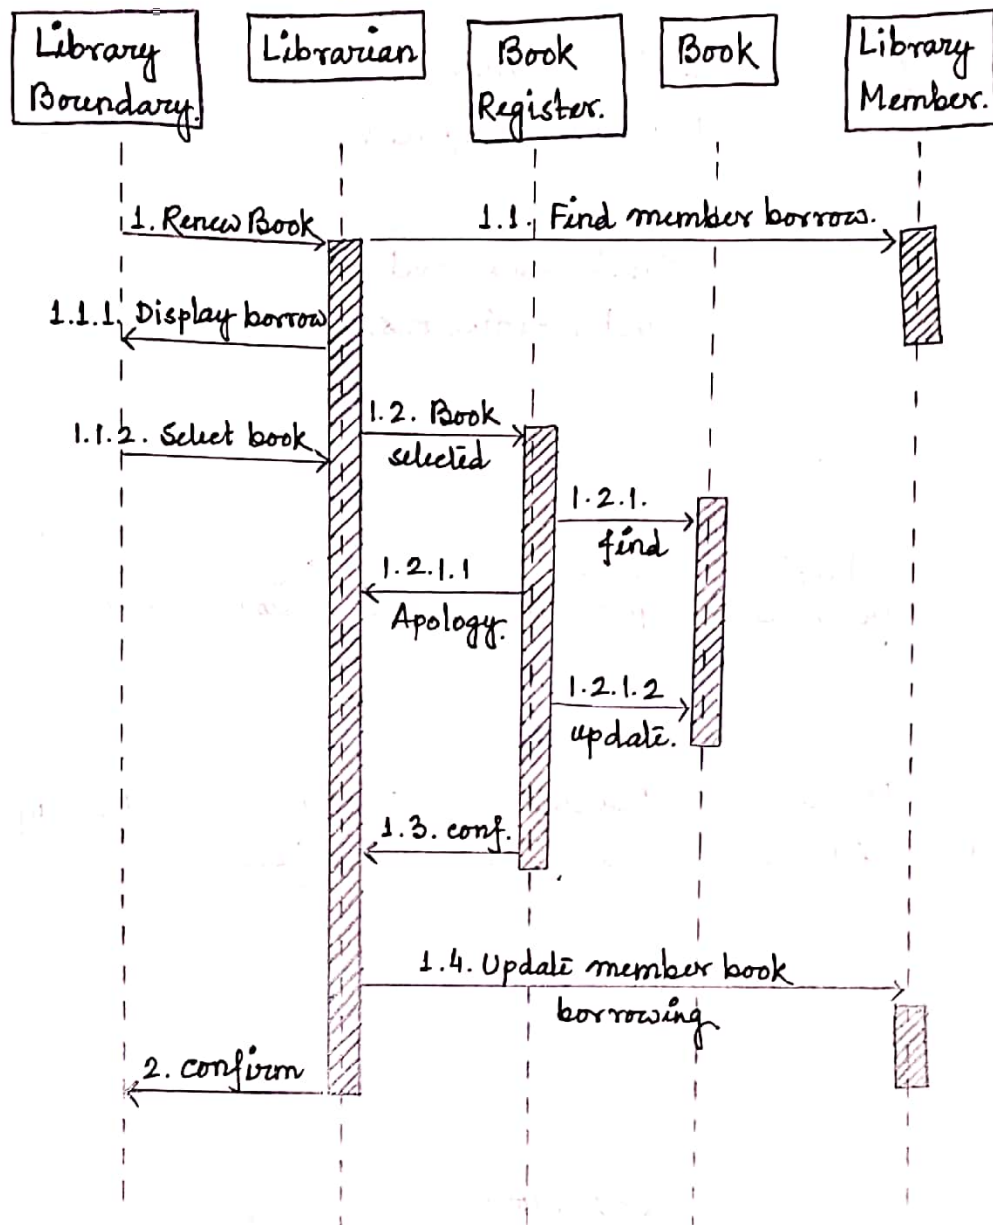 Library
Boundary.
Librarian
Book
Register.
Book
Library
Member.
1. Renew Book
1.1. Find member borrow.
1.1.1. Display borrow
1.1.2. Select book
1.2. Book
selected
1.2.1.
find
1.2.1.1
Apology.
1.2.1.2
update.
1.3. conf.
1.4. Update member book
borrowing
2. confirm